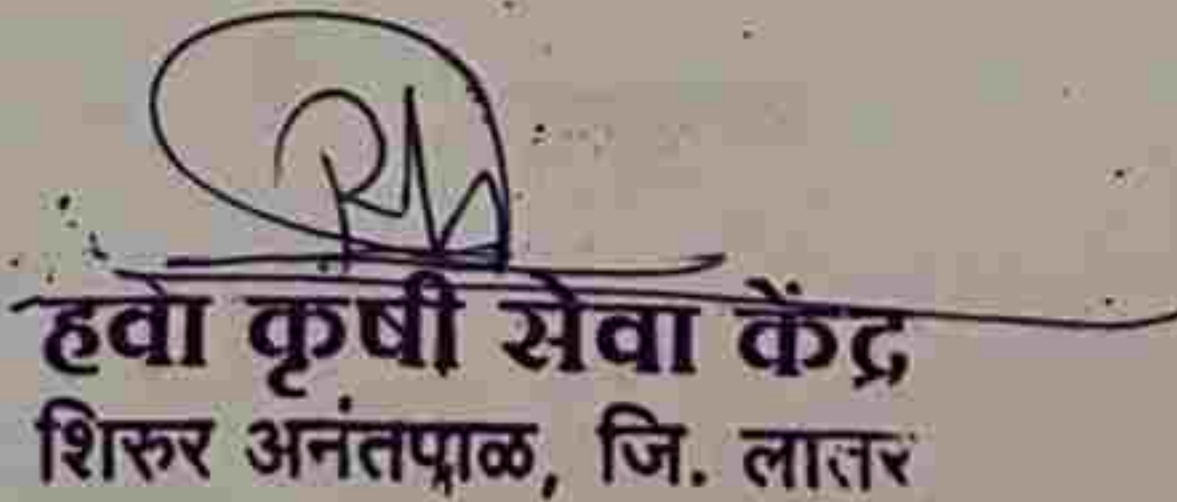 हवा कृषी सेवा केंद्र
शिरुर अनंतपाळ, जि. लातूर